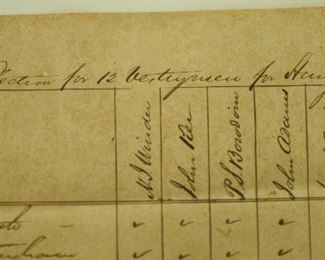 lection for 12 Vestrymen for Hun
N. J. Winder
John Ker
P. L. Bowdoin
John Adams